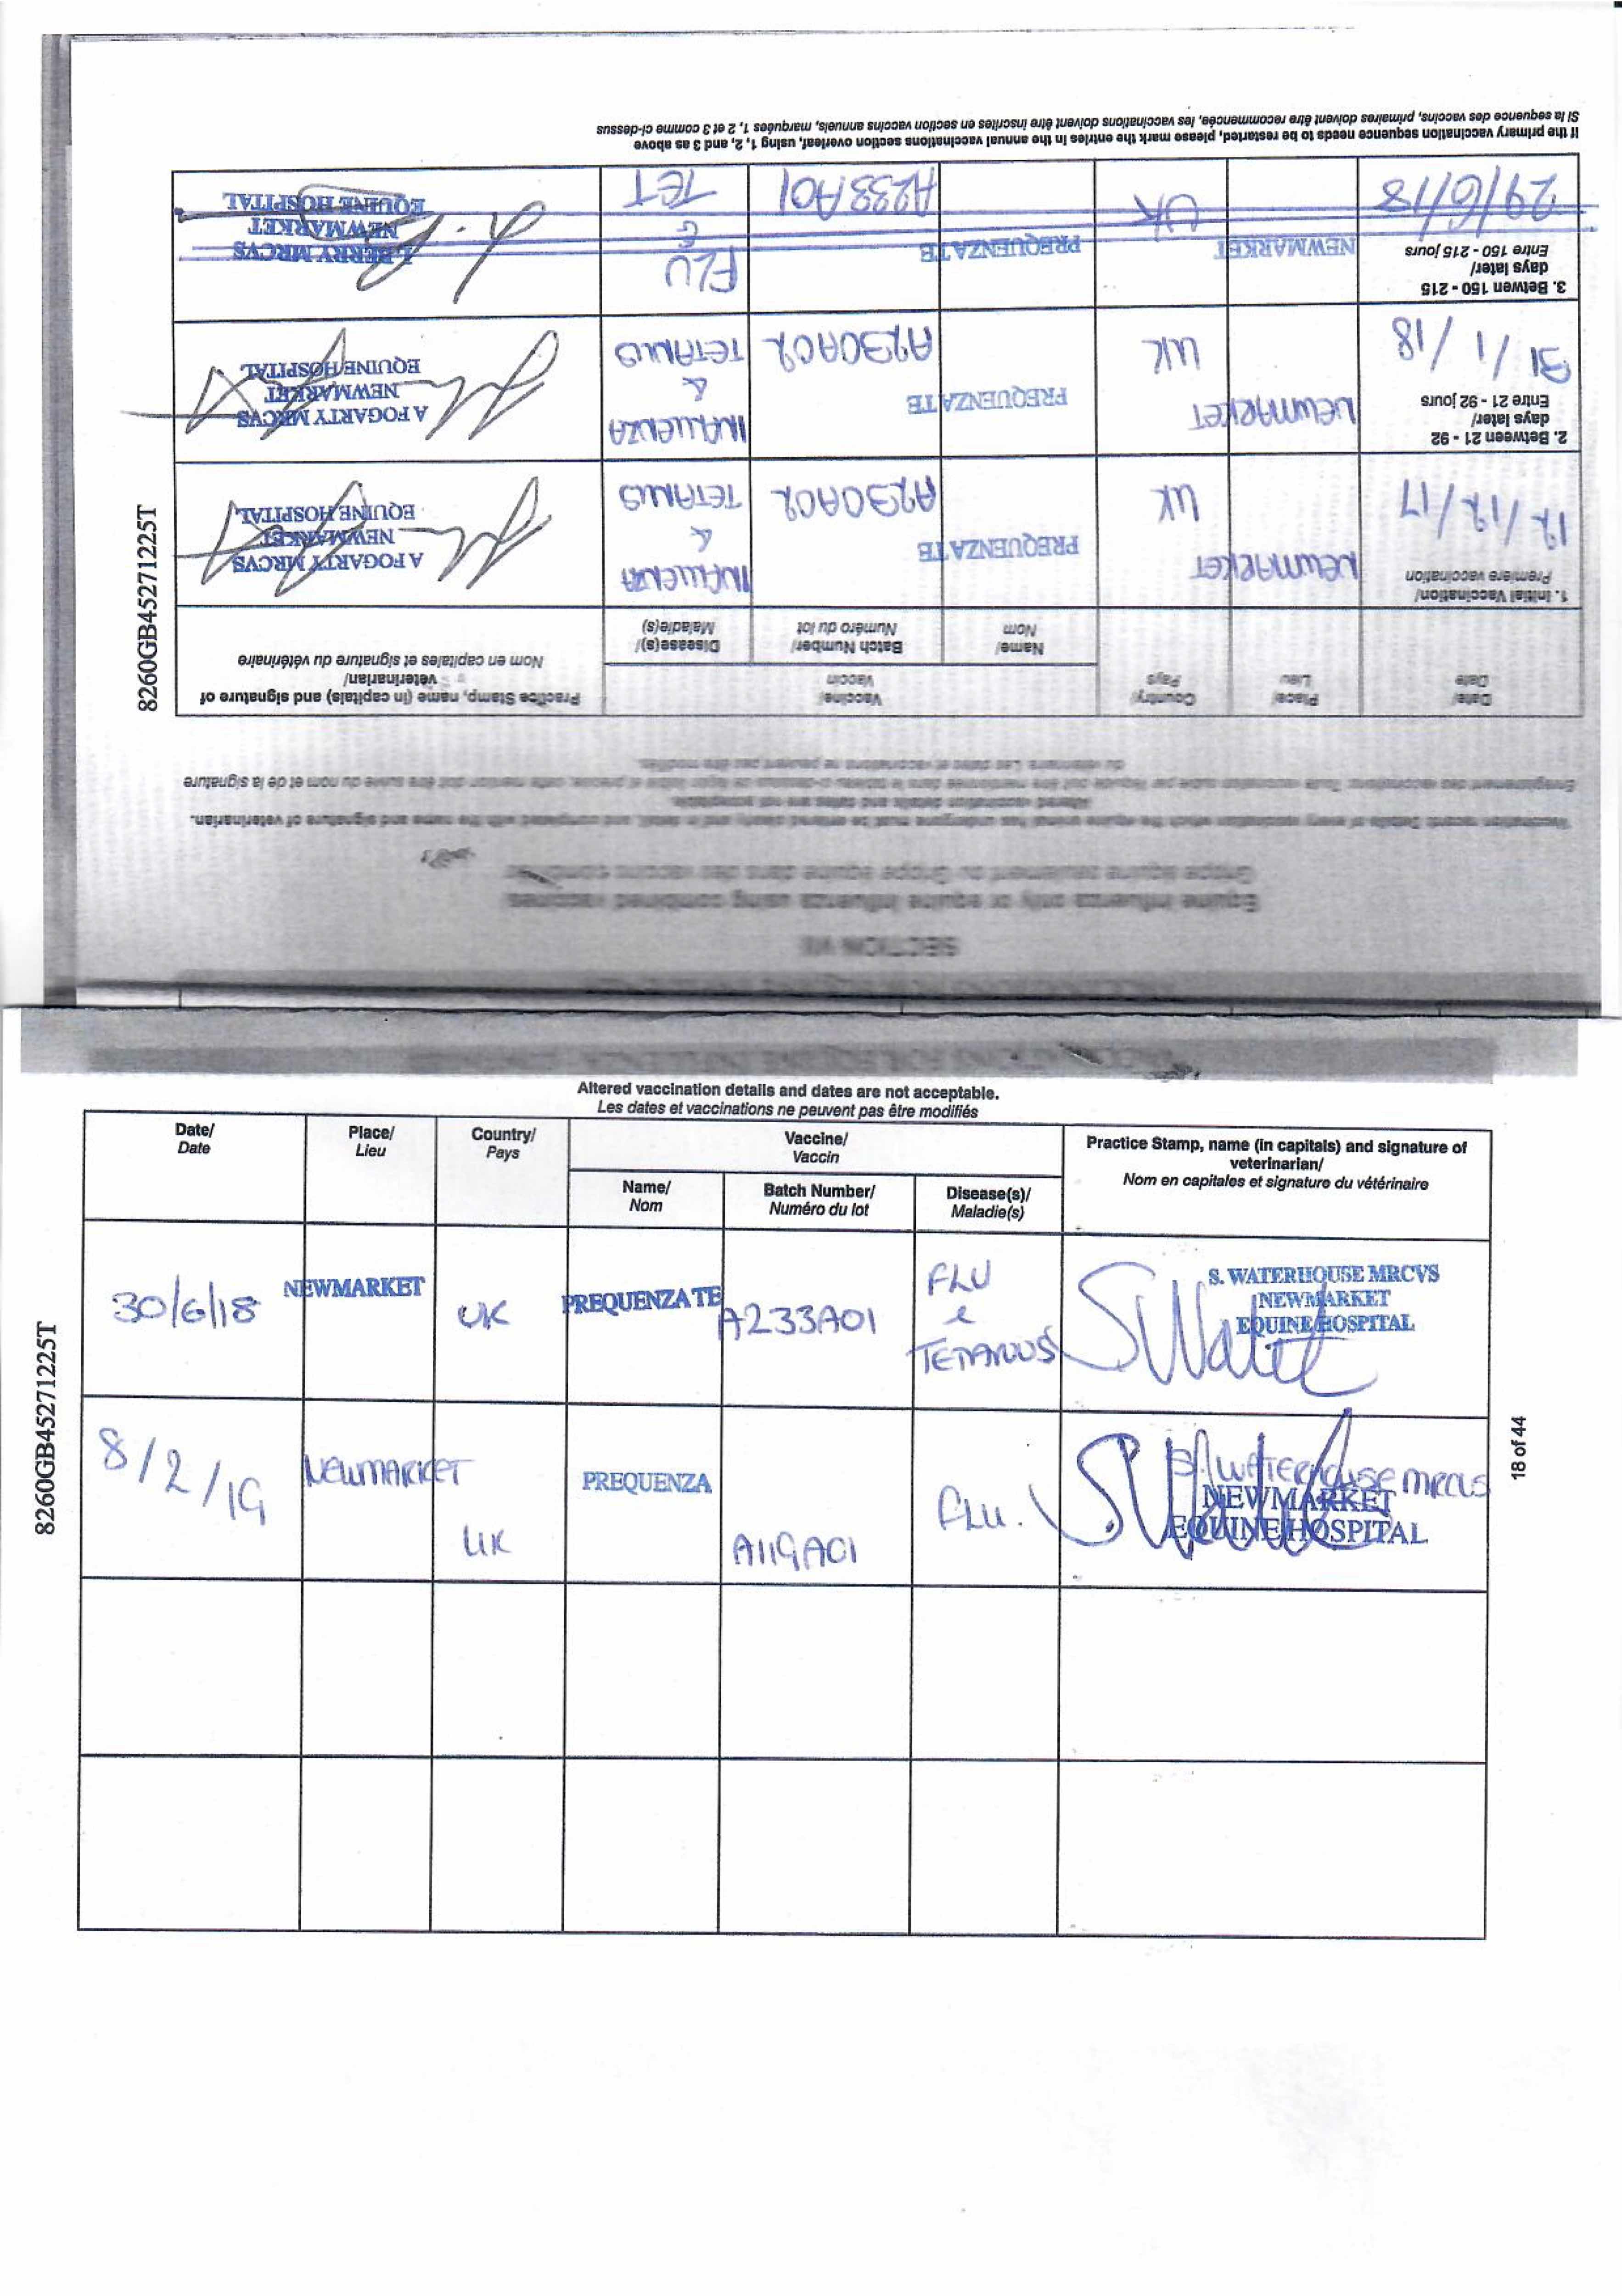 SECTION VII
Equine influenza only or equine influenza using combined vaccines
Grippe équine seulement ou Grippe équine dans des vaccins combinés
Vaccination record: Details of every vaccination which the equine animal has undergone must be entered clearly and in detail, and completed with the name and signature of veterinarian.
Altered vaccination details and dates are not acceptable.
du vétérinaire. Les dates et vaccinations ne peuvent pas être modifiés.
8260GB45271225T
Date/ Place/ Country/ Vaccine/ Practice Stamp, name (in capitals) and signature of
Date Lieu Pays Vaccin veterinarian/
Nom en capitales et signature du vétérinaire
Name/ Batch Number/ Disease(s)/
Nom Numéro du lot Maladie(s)
1. Initial Vaccination/
Première vaccination
12/12/17
NEWMARKET
UK
PREQUENZA TE
A230A02
INFLUENZA
&
TETANUS
A FOGARTY MRCVS
NEWMARKET
EQUINE HOSPITAL
2. Between 21 - 92
days later/
Entre 21 - 92 jours
31/1/18
NEWMARKET
UK
PREQUENZA TE
A230A02
INFLUENZA
&
TETANUS
A FOGARTY MRCVS
NEWMARKET
EQUINE HOSPITAL
3. Betwen 150 - 215
days later/
Entre 150 - 215 jours
29/6/18
NEWMARKET
UK
PREQUENZA TE
A233A01
FLU
E
TET
J. BERRY MRCVS
NEWMARKET
EQUINE HOSPITAL
If the primary vaccination sequence needs to be restarted, please mark the entries in the annual vaccinations section overleaf, using 1, 2, and 3 as above
Si la sequence des vaccins, primaires doivent être recommencée, les vaccinations doivent être inscrites en section vaccins annuels, marquées 1, 2 et 3 comme ci-dessus
Altered vaccination details and dates are not acceptable.
Les dates et vaccinations ne peuvent pas être modifiés
Date/ Place/ Country/ Vaccine/ Practice Stamp, name (in capitals) and signature of
Date Lieu Pays Vaccin veterinarian/
Nom en capitales et signature du vétérinaire
Name/ Batch Number/ Disease(s)/
Nom Numéro du lot Maladie(s)
30/6/18
NEWMARKET
UK
PREQUENZA TE
A233A01
FLU
e
TETANUS
S. WATERHOUSE MRCVS
NEWMARKET
EQUINE HOSPITAL
8/2/19
NEWMARKET
UK
PREQUENZA
A119A01
FLU.
WATERHOUSE MRCVS
NEWMARKET
EQUINE HOSPITAL
8260GB45271225T
18 of 44